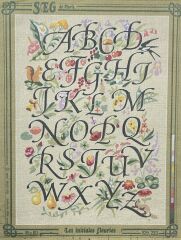 SEG
de Paris
ABCD
EFGHI
JKLM
NOPQ
RSTUV
WXYZ
Les initiales fleuries